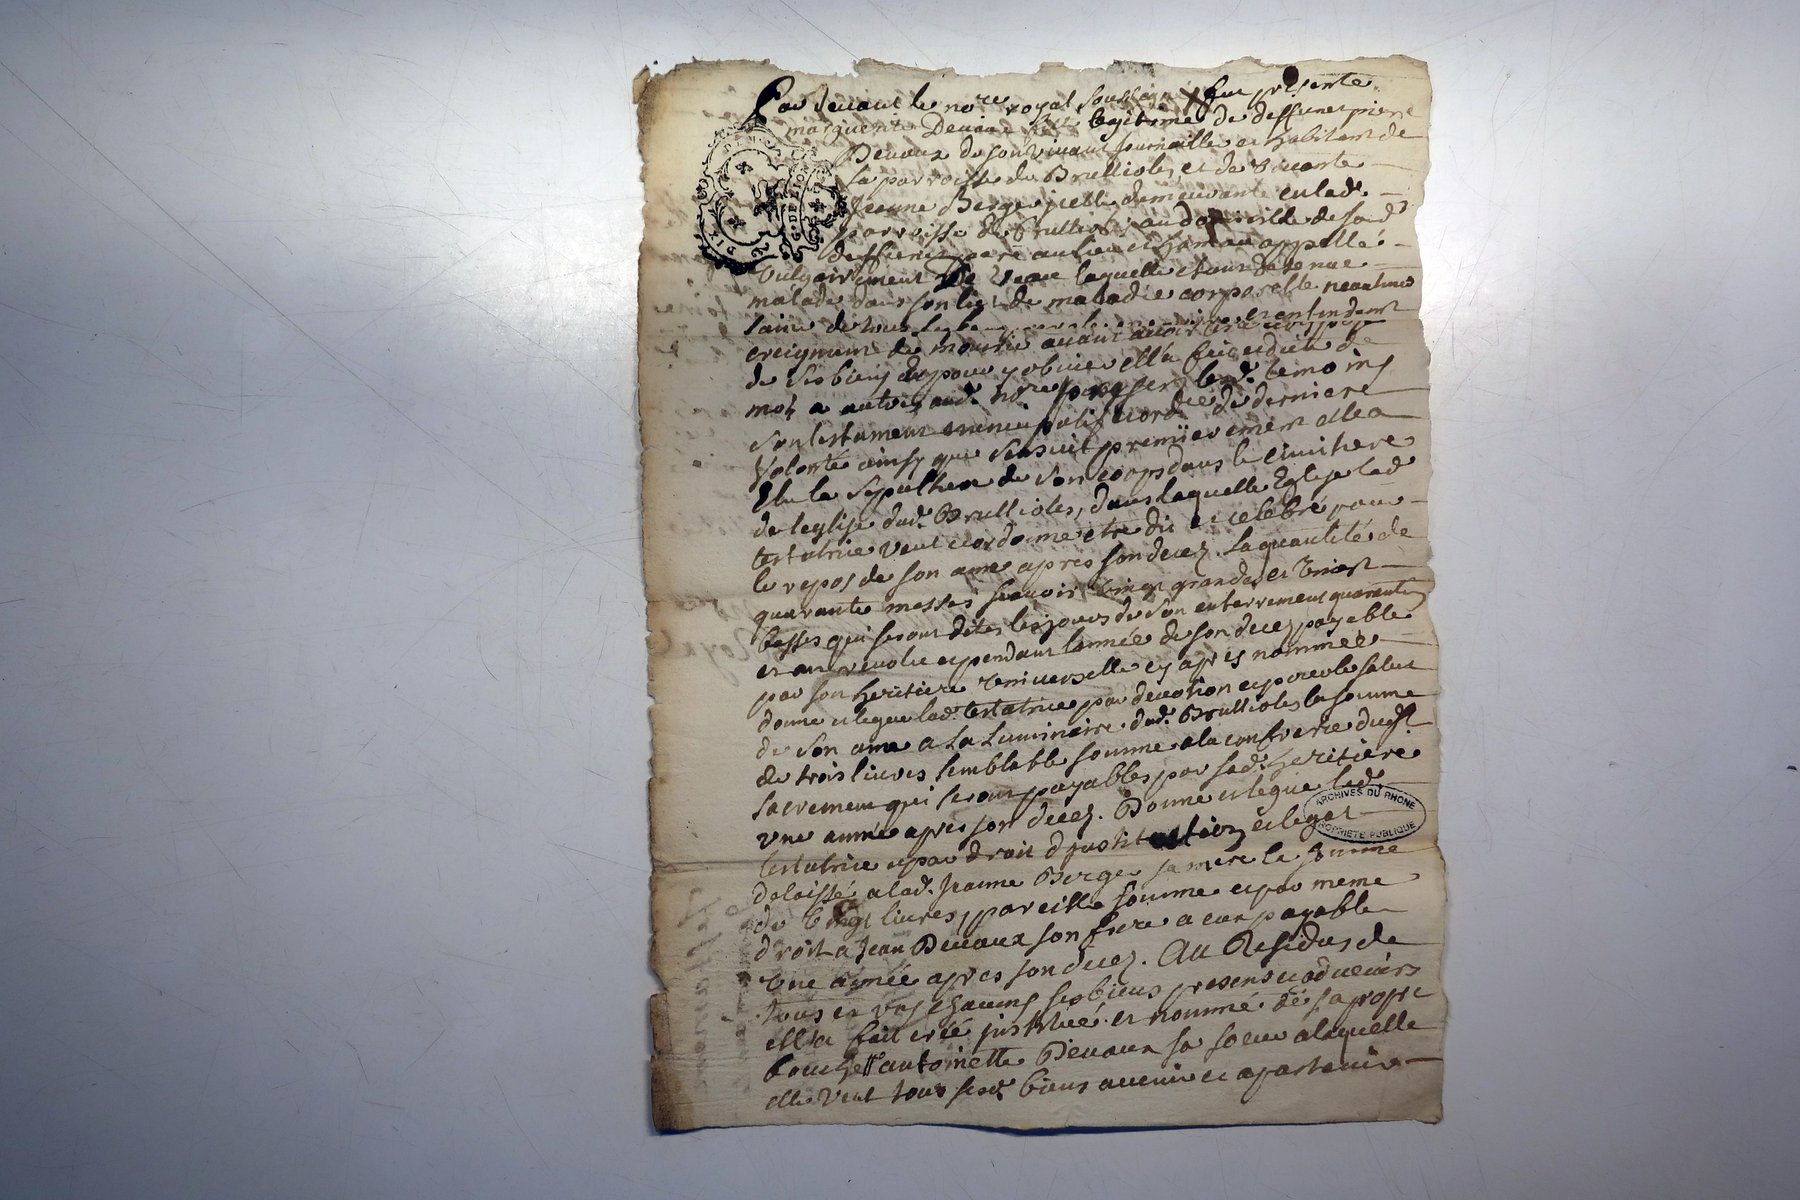 Par devant le no.re royal soussigné fut presente
marguerite Devaux fille legitime de deffunct pierre
Devaux de son vivant journaillier et habitant de
la parroisse de Brullioles et de vivante
Jeanne Berger icelle demeurante en lad.
parroisse de Brullioles au domicille de sond.
deffunct pere au lieu et hameau appellé
vulgairement laquelle etant detenue
malade dans son lict de maladie corporelle neantmoins
saine de tous et entendement
creignant de mourir avant avoir
de ses biens et pour y obvier ell'a fait et dicté
moy a autre aud. no.re present led. temoins
son testament nuncupatif et ord.ce de derniere
volonté ainsy que sensuit premierement ell'a
elu la sepulture de son corps dans le cimithere
de leglise dud. Brullioles, dans laquelle Eglise lad
testatrice veut et ordonne etre dit et celebré pour
le repos de son ame apres son decez la quantité de
quarante messes scavoir vingt grandes et vingt
basses qui seront dites les jours de son enterrement quarantin
et an revolu et pendant lannée de son decez payable
par son heritiere universelle cy apres nommée
donne et legue lad. testatrice par devotion et pour le salut
de son ame a La Luminaire dud. Brullioles la somme
de trois livres semblable somme a la confrerie du st
sacrement qui seront payables par sad. heritiere
une année apres son decez. Donne et legue lad.
testatrice et par droit d'institution et legat
delaissé a lad. Jeanne Berger sa mere la somme
de vingt livres, pareille somme et par meme
droit a Jean Devaux son frere a eux payable
une année apres son decez. Au Residus de
tous et uns chacuns ses biens presens et advenirs
ell'a fait créé institué et nommé de sa propre
bouche antoinette Devaux sa soeur a laquelle
elle veut tous sesd. biens avenir et apartenir
G. DE LION
ARCHIVES DU RHONE
PROPRIETE PUBLIQUE